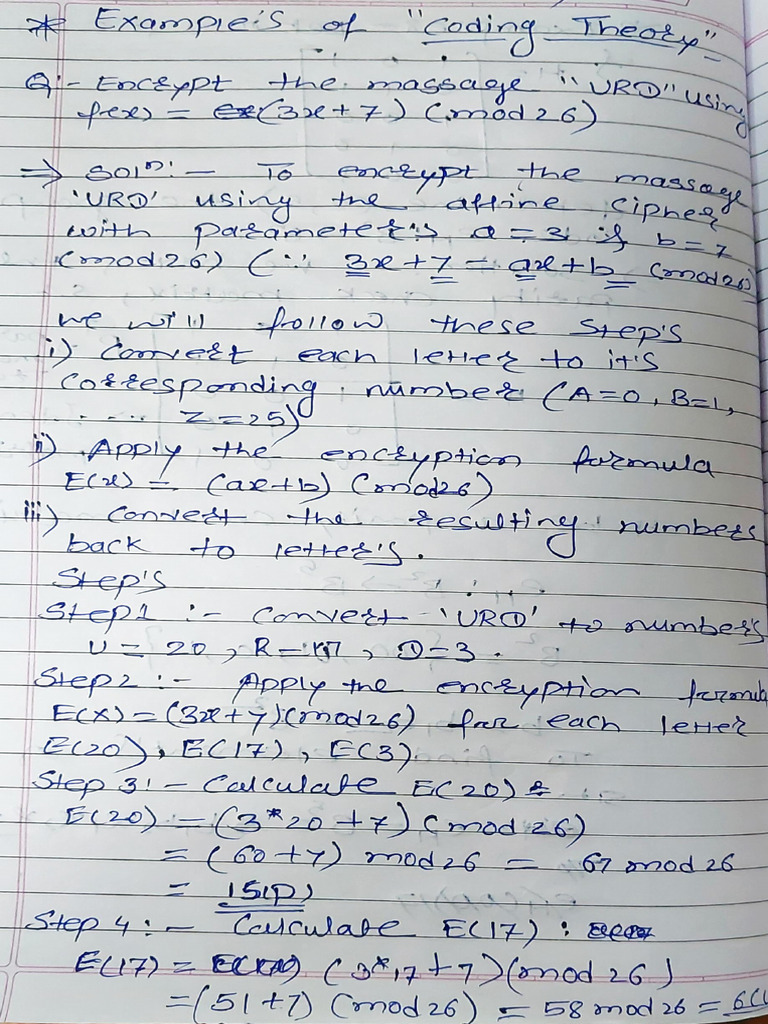 * Example's of "Coding Theory"
Q:- Encrypt the massage "URD" using
f(x) = (3x+7) (mod 26)
=> Soln:- To encrypt the massage
'URD' using the affine cipher
with parameter's a=3 & b=7
(mod 26) (∵ 3x+7 = ax+b (mod 26)
we will follow these step's
i) Convert each letter to it's
Corresponding number (A=0, B=1,
...... Z=25)
ii) Apply the encryption formula
E(x) = (ax+b) (mod26)
iii) Convert the resulting numbers
back to letter's.
Step's
Step1 :- Convert 'URD' to number's
U = 20, R=17, D=3.
Step2 :- Apply the encryption formula
E(x) = (3x+7)(mod26) for each letter
E(20), E(17), E(3)
Step 3:- Calculate E(20)
E(20) = (3*20+7) (mod 26)
= (60+7) mod 26 = 67 mod 26
= 15(P)
Step 4:- Calculate E(17) :
E(17) = (3*17+7)(mod 26)
=(51+7) (mod 26) = 58 mod 26 = 6(